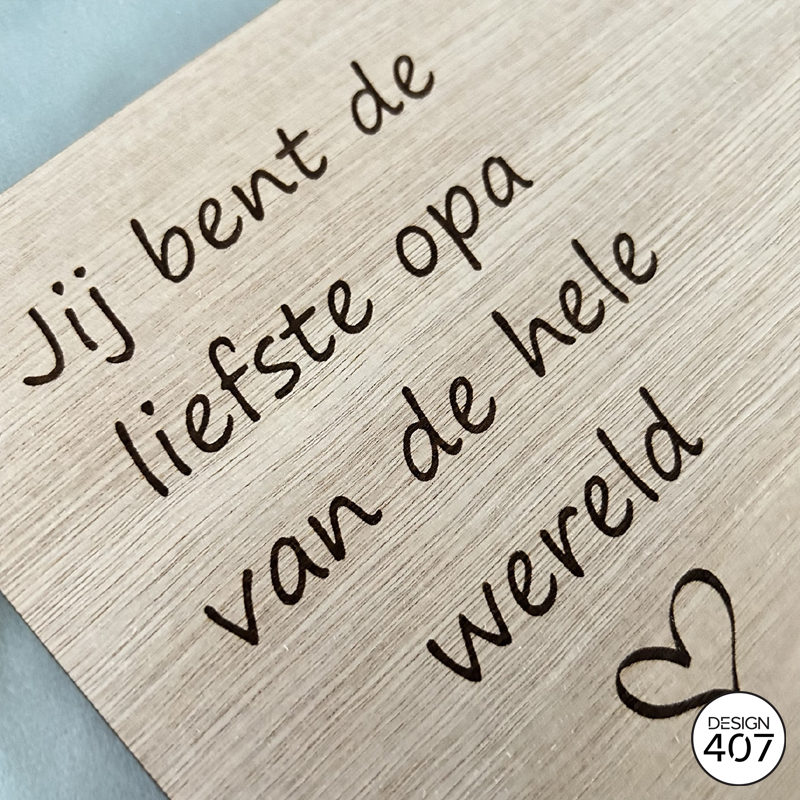 Jij bent de
liefste opa
van de hele
wereld
DESIGN
407